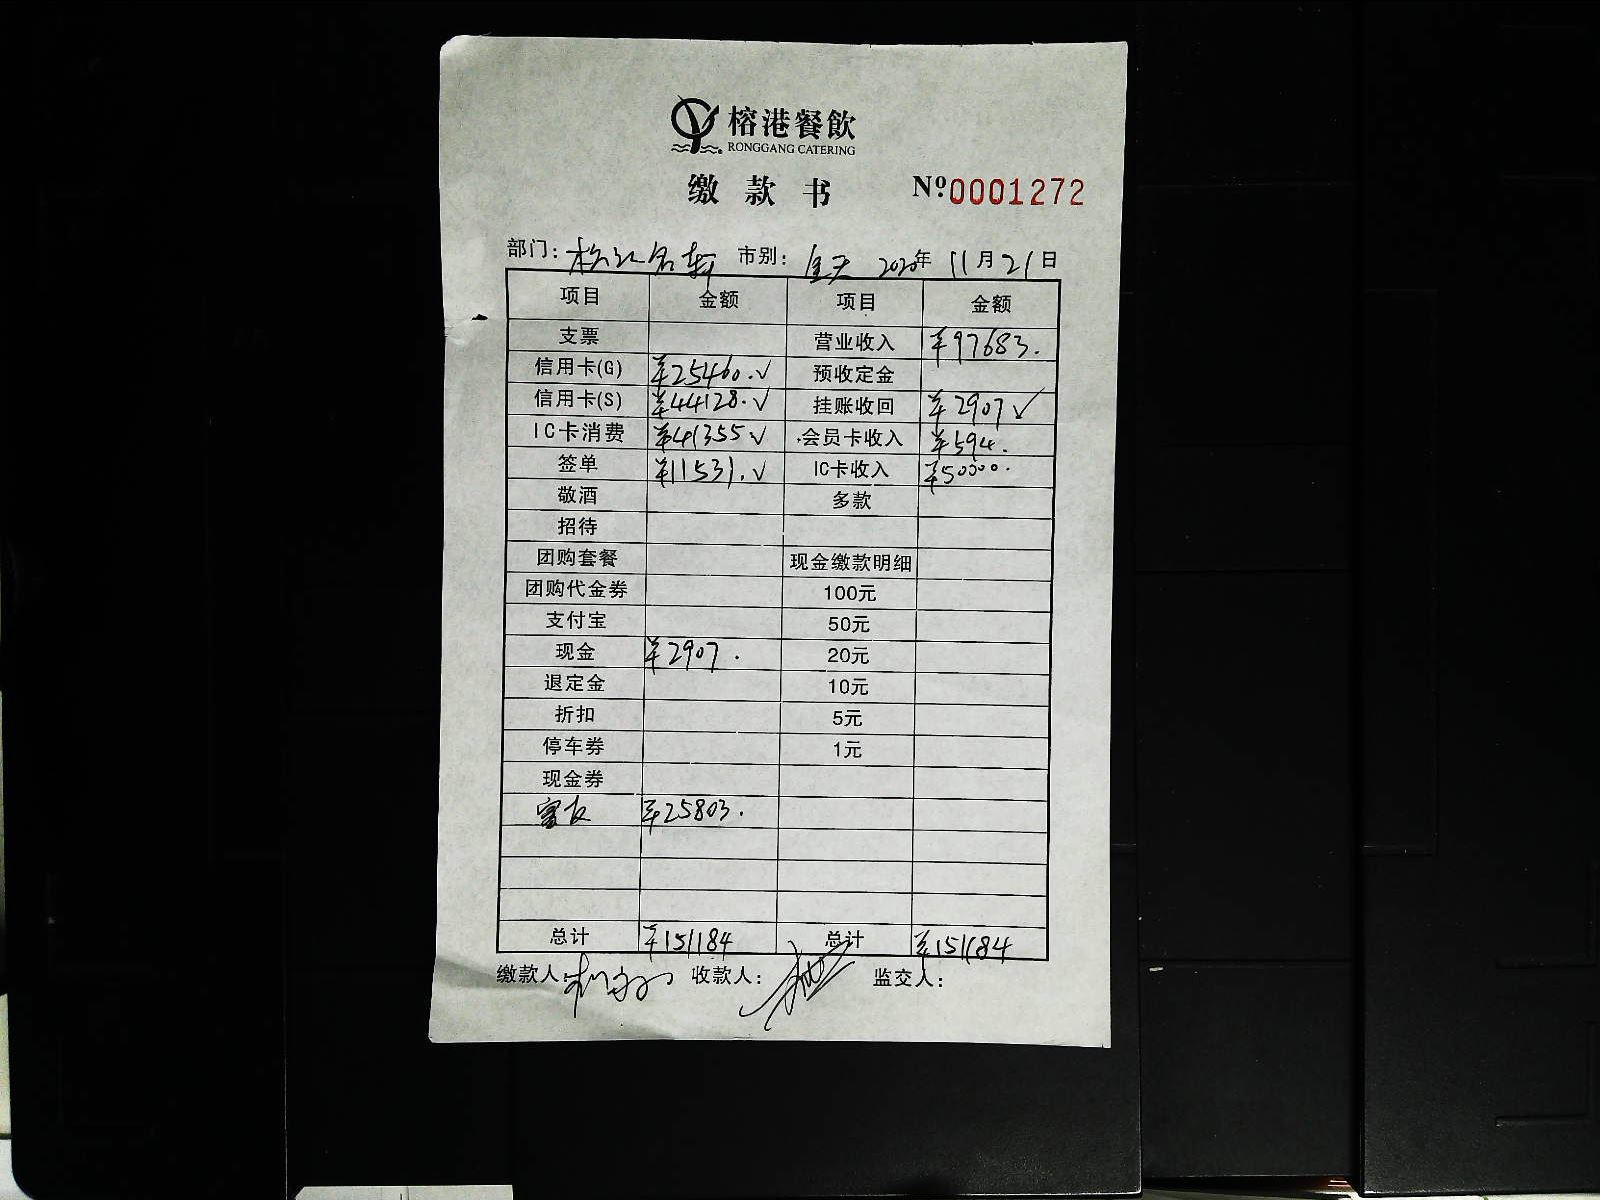 榕港餐飲
RONGGANG CATERING
缴款书 Nº0001272
部门: 市别: 全天 2020年 11月21日
项目 金额 项目 金额
支票 营业收入 ¥97683.
信用卡(G) ¥25460.✓ 预收定金
信用卡(S) ¥44128.✓ 挂账收回 ¥2907✓
IC卡消费 ¥41355✓ 会员卡收入 ¥594.
签单 ¥11531.✓ IC卡收入 ¥50000.
敬酒 多款
招待
团购套餐 现金缴款明细
团购代金券 100元
支付宝 50元
现金 ¥2907. 20元
退定金 10元
折扣 5元
停车券 1元
现金券
¥25803.
总计 ¥151184 总计 ¥151184
缴款人: 收款人: 监交人: